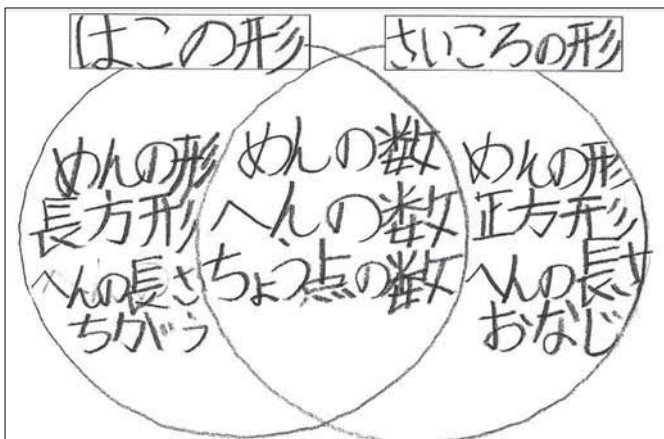 はこの形
さいころの形
めんの形
長方形
へんの長さ
ちがう
めんの数
へんの数
ちょう点の数
めんの形
正方形
へんの長さ
おなじ